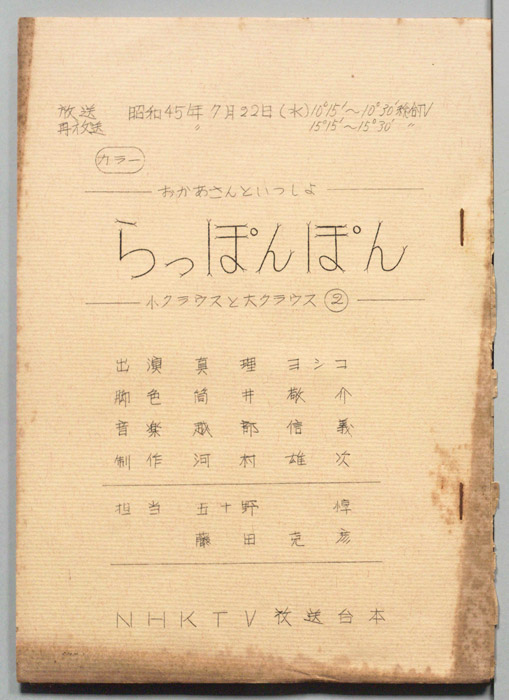 放送 昭和45年7月22日(水)10°15'~10°30'総合TV
再放送 〃 15°15'~15°30' 〃
カラー
おかあさんといっしょ
らっぽんぽん
小クラウスと大クラウス②
出演 真理ヨシコ
脚色 筒井敬介
音楽 越部信義
制作 河村雄次
担当 五十野惇
藤田克彦
NHKTV放送台本